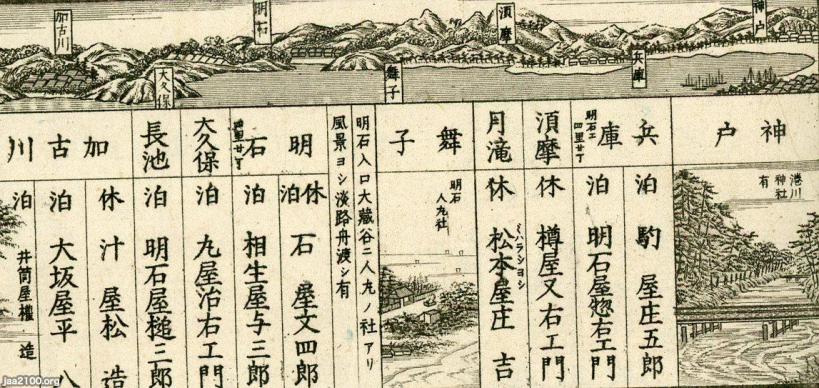 神戸
兵庫
須磨
舞子
明石
大久保
加古川
神戸
湊川神社有
兵庫
明石エ四里廿丁
泊 駒屋庄五郎
泊 明石屋惣右エ門
須磨
休 樽屋又右エ門
月滝
休 松本屋庄吉
ミハラシヨシ
舞子
明石人丸社
明石入口大蔵谷ニ人丸ノ社アリ
風景ヨシ淡路舟渡シ有
明石
休泊 石屋文四郎
泊 相生屋与三郎
大久保
泊 丸屋治右エ門
長池
泊 明石屋槌三郎
加古川
休 汁屋松造
泊 大坂屋平八
泊 井筒屋権造
jaa2100.org